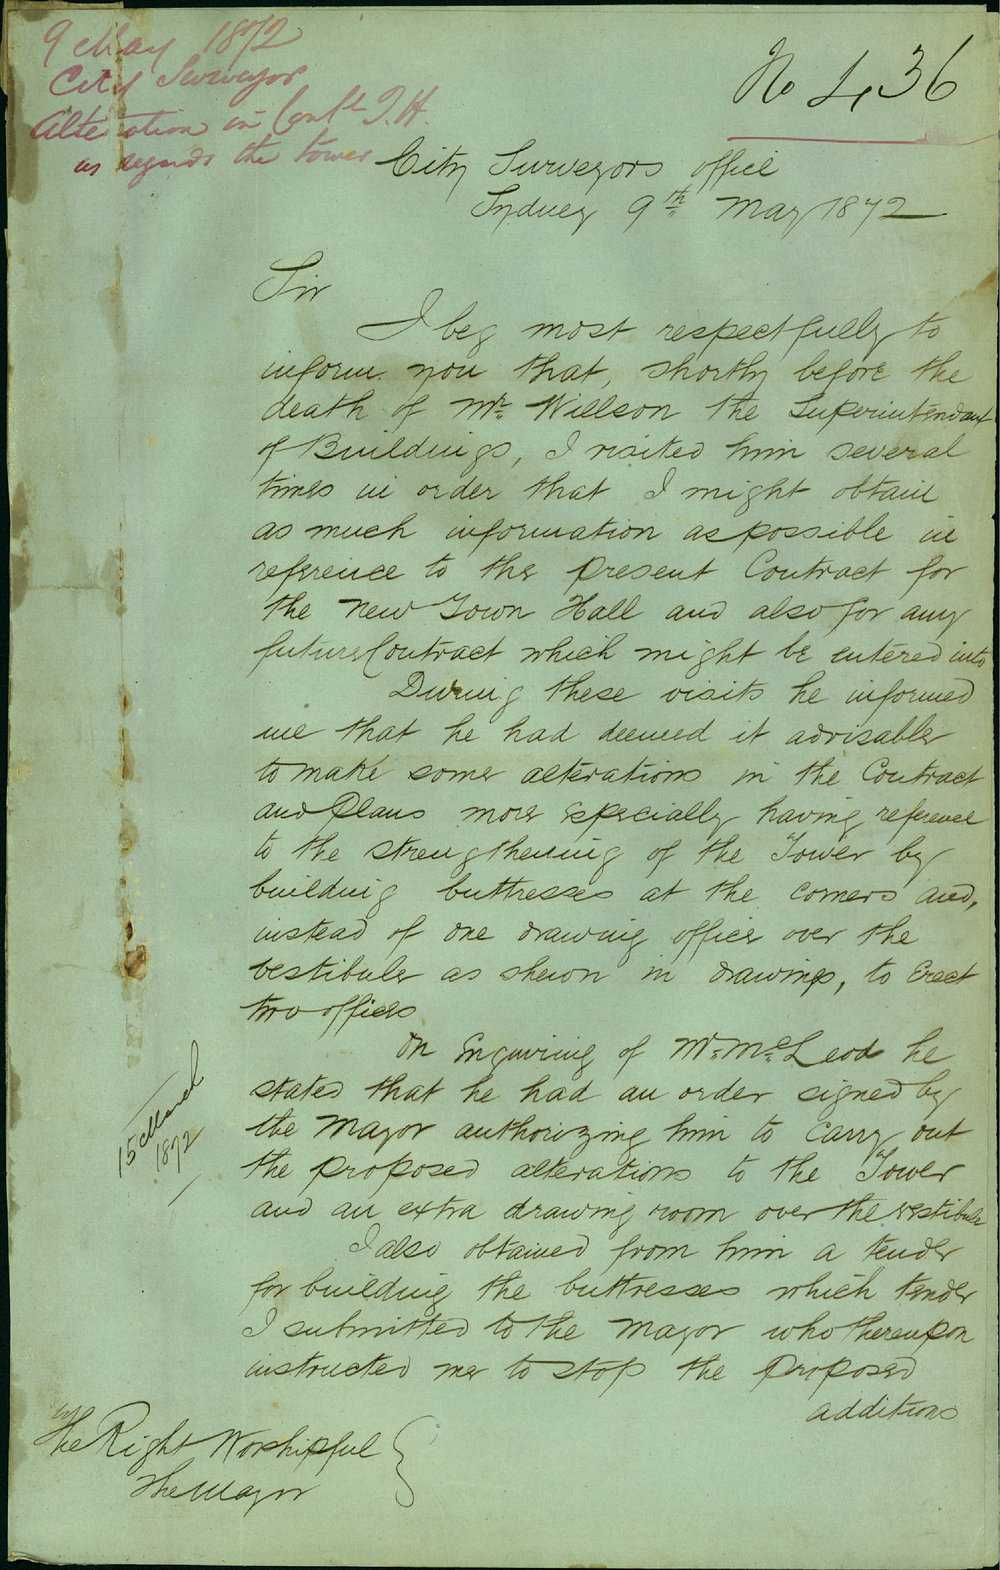 9 May 1872
City Surveyor
Alteration in Cont<sup>t</sup> T.H.
as regards the tower
No 436
City Surveyors office
Sydney 9th May 1872
Sir
I beg most respectfully to
inform you that, shortly before the
death of Mr Willson the Superintendant
of Buildings, I visited him several
times in order that I might obtain
as much information as possible in
reference to the present Contract for
the New Town Hall and also for any
future Contract which might be entered into
During these visits he informed
me that he had deemed it advisable
to make some alterations in the Contract
and Plans more especially having reference
to the strengthening of the Tower by
building buttresses at the corners and,
instead of one drawing office over the
vestibule as shewn in drawings, to Erect
two offices
On Enquiring of Mr McLeod he
stated that he had an order signed by
the Mayor authorizing him to Carry out
the proposed alterations to the Tower
and an extra drawing room over the vestibule
15 March
1872
I also obtained from him a tender
for building the buttresses which tender
I submitted to the Mayor who thereupon
instructed me to stop the proposed
additions
The Right Worshipful
The Mayor